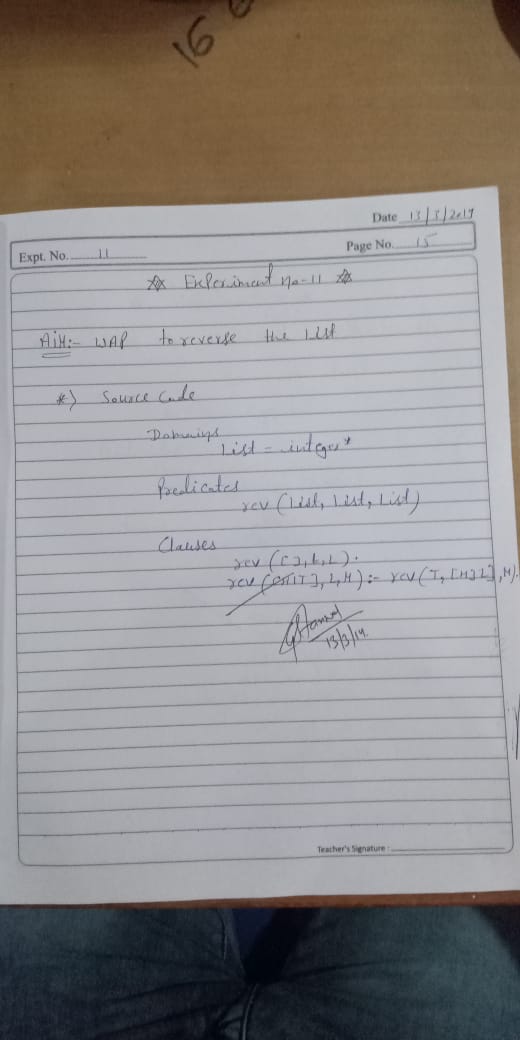 16
Date 13/3/2019
Expt. No. 11
Page No. 15
Experiment no-11
AiM:- WAP to reverse the List
*) Source Code
Domains
List = integer*
Predicates
rev (List, List, List)
Clauses
rev ([], L, L).
rev ([H|T], L, M) :- rev (T, [H|L], M).
13/3/19
Teacher's Signature :